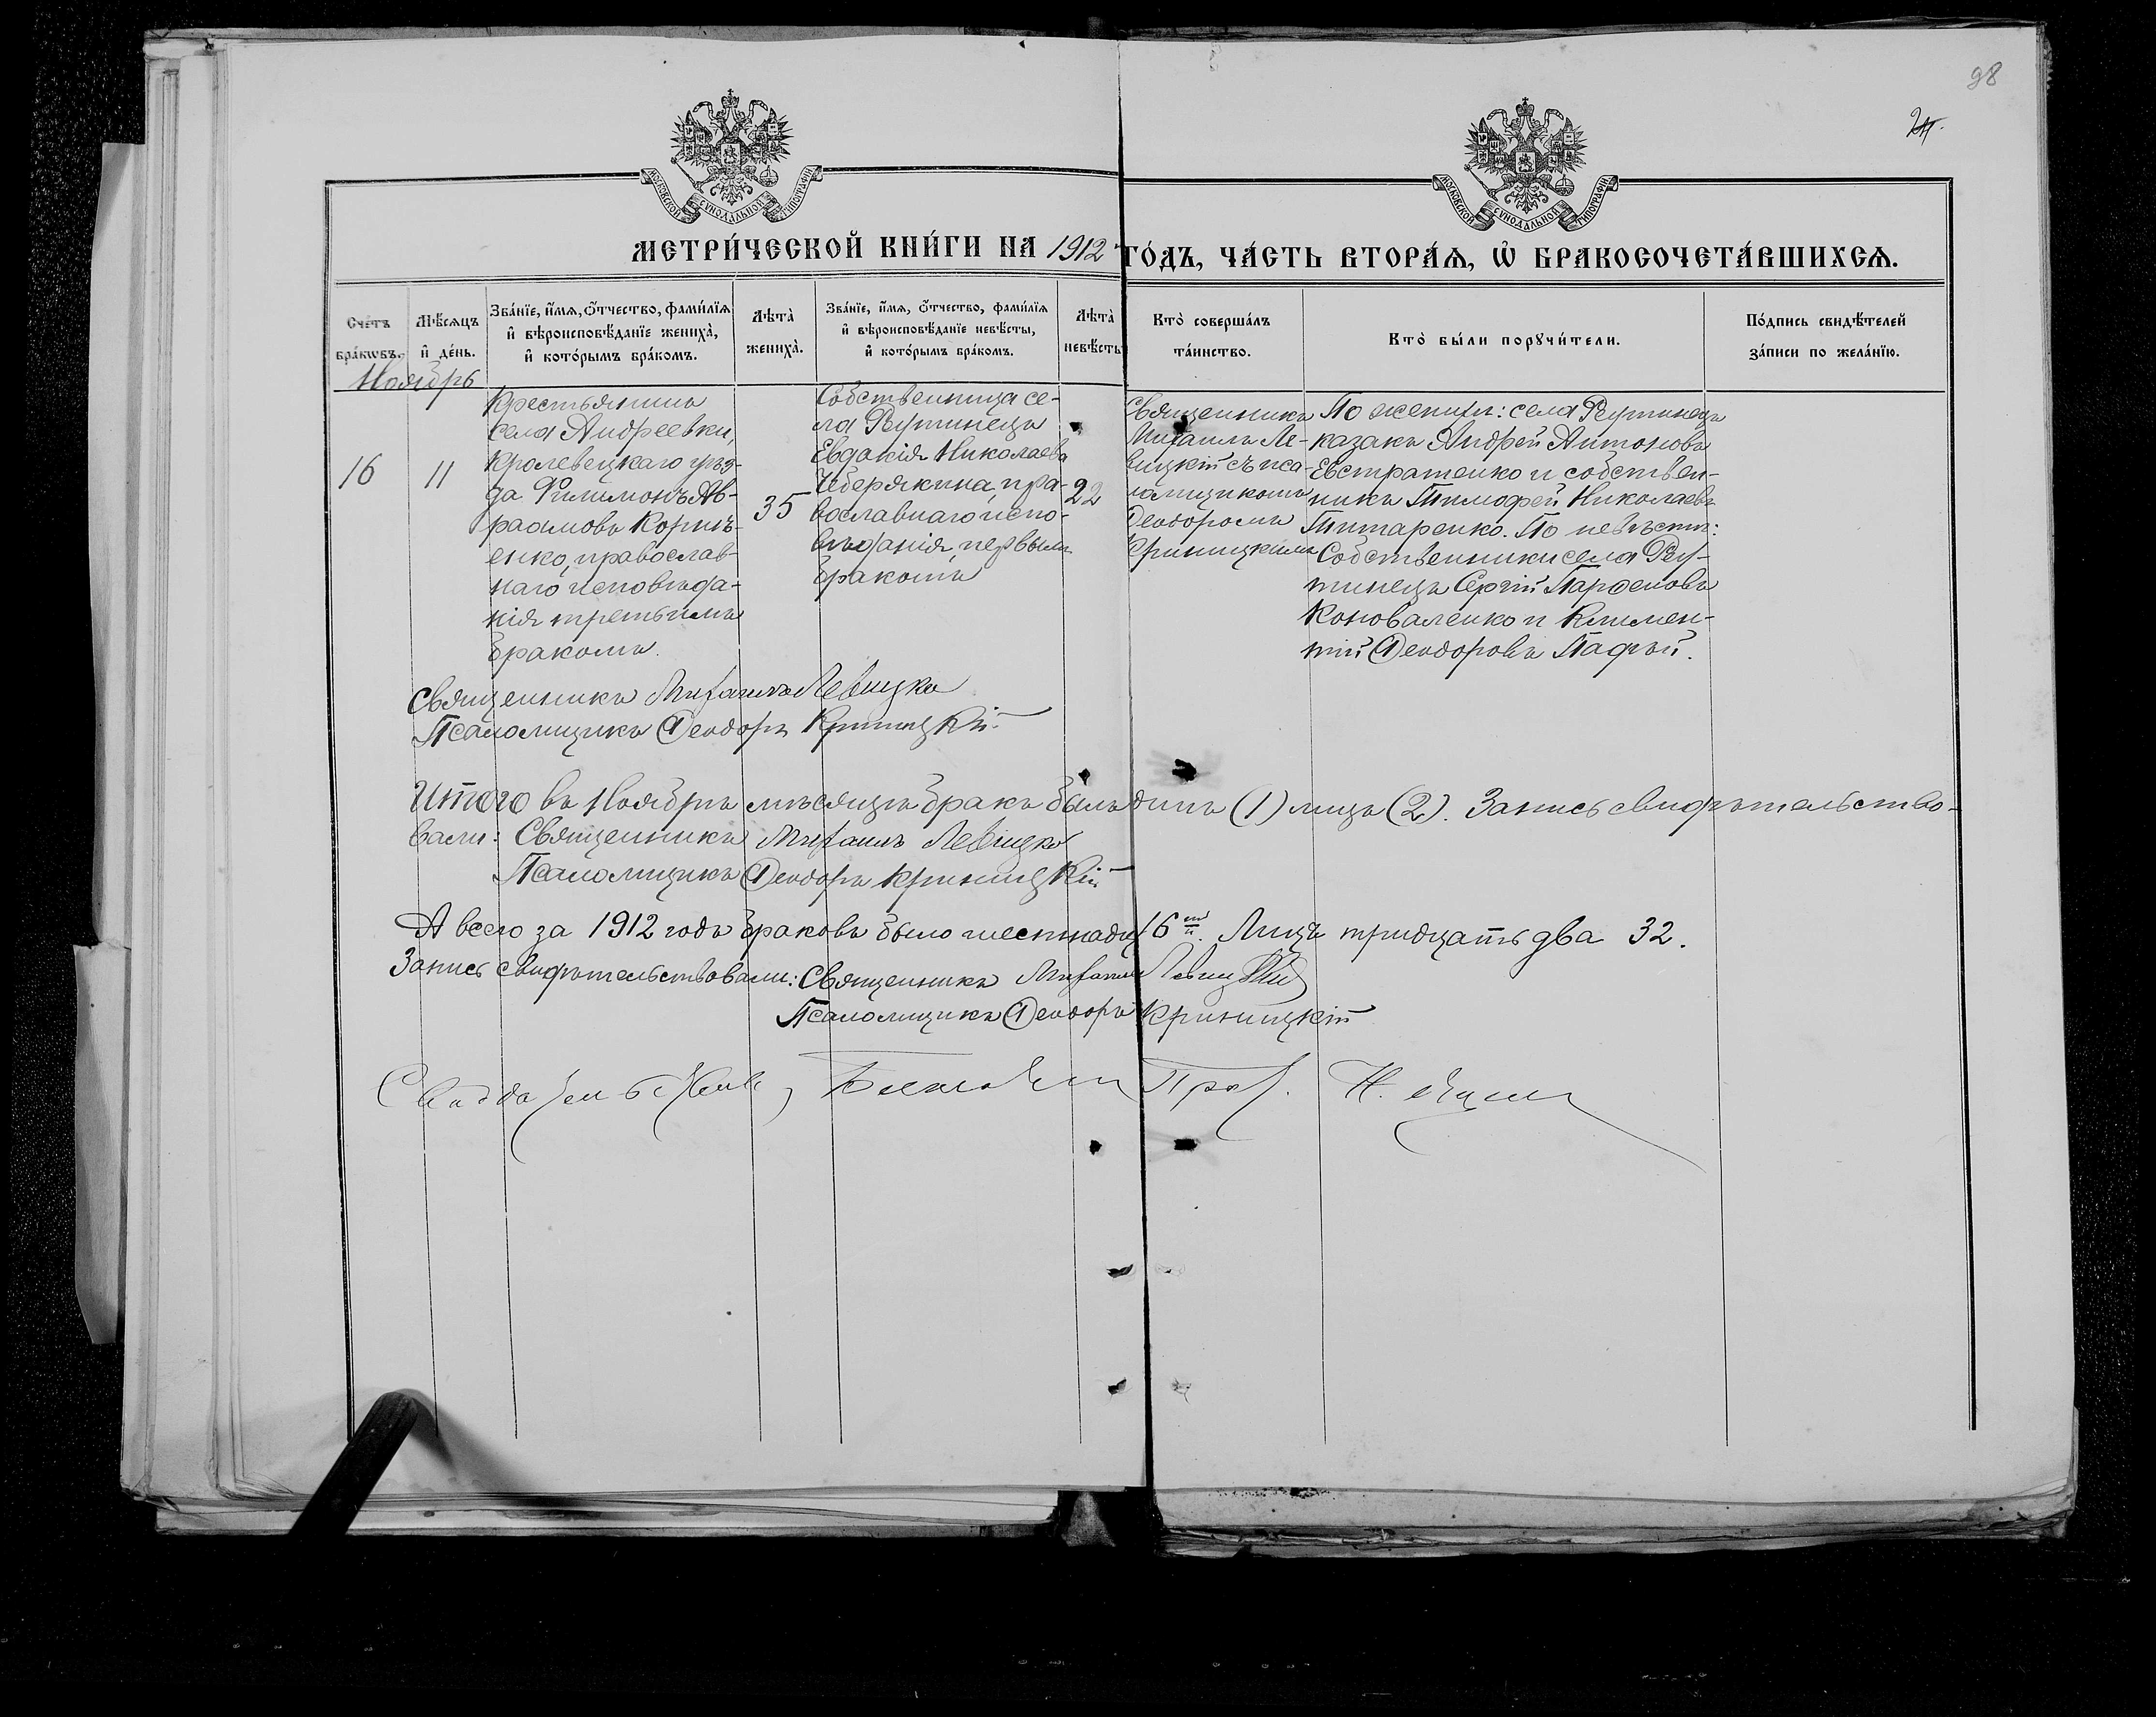 98
24.
МОСКОВСКОЙ СѴНОДАЛЬНОЙ ТИПОГРАФІИ
МОСКОВСКОЙ СѴНОДАЛЬНОЙ ТИПОГРАФІИ
МЕТРИ́ЧЕСКОЙ КНИ́ГИ НА 1912 ГО́ДЪ, ЧА́СТЬ ВТОРА́Ѧ, Ѡ҆ БРАКОСОЧЕТА́ВШИХСѦ.
Сче́тъ
бра́кѡвъ.
Мѣ́сѧцъ
и҆ де́нь.
Зва́нїе, и҆́мѧ, ѻ҆́тчество, фами́лїѧ
и҆ вѣроисповѣ́данїе жениха̀,
и҆ кото́рымъ бра́комъ.
Лѣта̀
жениха̀.
Зва́нїе, и҆́мѧ, ѻ҆́тчество, фами́лїѧ
и҆ вѣроисповѣ́данїе невѣ́сты,
и҆ кото́рымъ бра́комъ.
Лѣта̀
невѣ́сты
Кто̀ соверша́лъ
та́инство.
Кто̀ бы́ли порꙋчи́тели.
По́дпись свидѣ́телей
за́писи по жела́нїю.
Ноябрь
16
11
Крестьянинъ
села Андреевки,
Кролевецкаго уѣз-
да Филимонъ Ав-
раамовъ Корнѣ-
енко, православ-
наго исповѣда-
нія третьимъ
бракомъ.
35
Собственница се-
ла Рутинецъ
Евдокія Николаева
Чеберякина, пра-
вославнаго испо-
вѣданія, первымъ
бракомъ
22
Священникъ
Михаилъ Ле-
вицкій съ пса-
ломщикомъ
Ѳеодоромъ
Криницкимъ
По женихѣ: села Рутинецъ
казакъ Андрей Антоновъ
Евстратенко и собствен-
никъ Тимофей Николаевъ
Титаренко. По невѣстѣ:
Собственники села Ру-
тинецъ Сергій Парѳеновъ
Коноваленко и Климен-
тій Ѳеодоровъ Пафѣй.
Священникъ Михаилъ Левицкій
Псаломщикъ Ѳеодоръ Криницкій
Итого въ Ноябрѣ мѣсяцѣ бракъ былъ одинъ (1) лицъ (2). Запись свидѣтельство-
вали: Священникъ Михаилъ Левицкій
Псаломщикъ Ѳеодоръ Криницкій
А всего за 1912 годъ браковъ было шестнадц 16 ть. Лицъ тридцать два 32.
Запись свидѣтельствовали: Священникъ Михаилъ Левицкій
Псаломщикъ Ѳеодоръ Криницкій